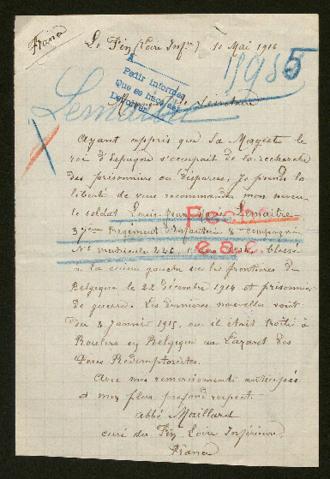 France
Le Fin (Loire Infre) 10 Mai 1916
A
Petir informes
Que se haga est
11985
Lemaitre
Monsieur le Secrétaire
Ayant appris que Sa Majesté le
roi d'Espagne s'occupait de la recherche
des prisonniers ou disparus, je prends la
liberté de vous recommander mon neveu
le soldat Louis Lemaitre
37me Régiment d'Infanterie 8e compagnie
No matricule blessé
à la cuisse gauche sur les frontières de
Belgique le 22 décembre 1914 et prisonnier
de guerre. Les dernières nouvelles sont
du 3 janvier 1915, où il était traité à
Roulers en Belgique au Lazaret des
Pères Rédemptoristes.
Avec mes remerciements anticipés
et mon plus profond respect.
abbé Maillard
curé du Fin Loire Inférieure
France